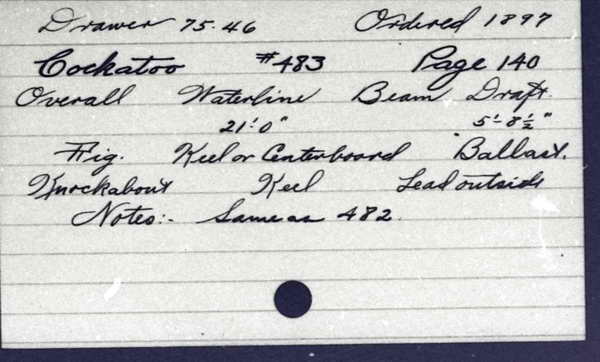 Drawer 75.46 Ordered 1897
Cockatoo #483 Page 140
Overall Waterline Beam Draft.
21'-0" 5'-8½"
Fig. Keel or Centerboard Ballast.
Knockabout Keel Lead outside
Notes:- Same as 482.